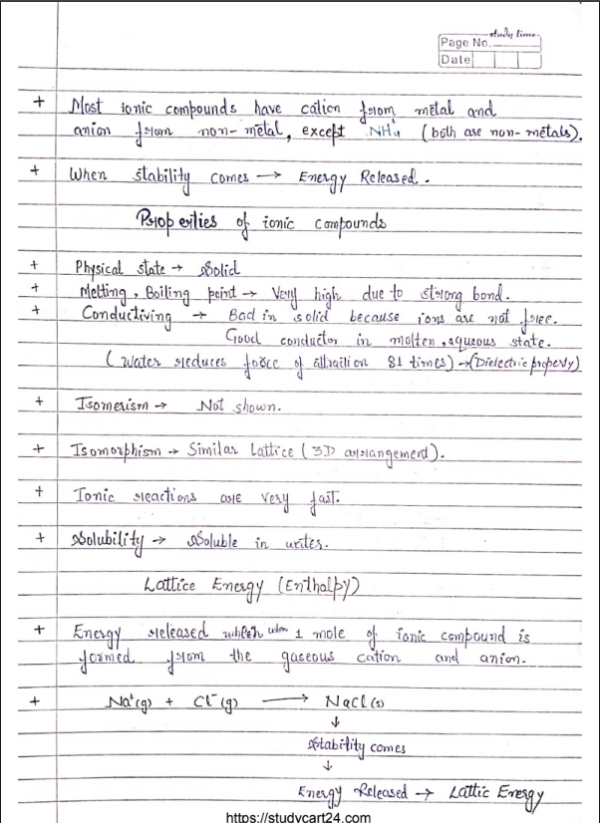 study time
Page No.
Date
+ Most ionic compounds have cation from metal and
anion from non-metal, except NH₄⁺ (both are non-metals).
+ When stability comes → Energy Released.
Properties of ionic compounds
+ Physical state → Solid
+ Melting, Boiling point → Very high due to strong bond.
+ Conductiving → Bad in solid because ions are not free.
Good conductor in molten, aqueous state.
(Water reduces force of attraition 81 times) → (Dielectric property)
+ Isomerism → Not shown.
+ Isomorphism → Similar Lattice (3D arrangement).
+ Ionic reactions are very fast.
+ Solubility → Soluble in wrtes.
Lattice Energy (Enthalpy)
+ Energy released when 1 mole of ionic compound is
formed from the gaseous cation and anion.
+ Na⁺(g) + Cl⁻(g) → NaCl(s)
↓
Stability comes
↓
Energy Released → Lattic Energy
https://studycart24.com